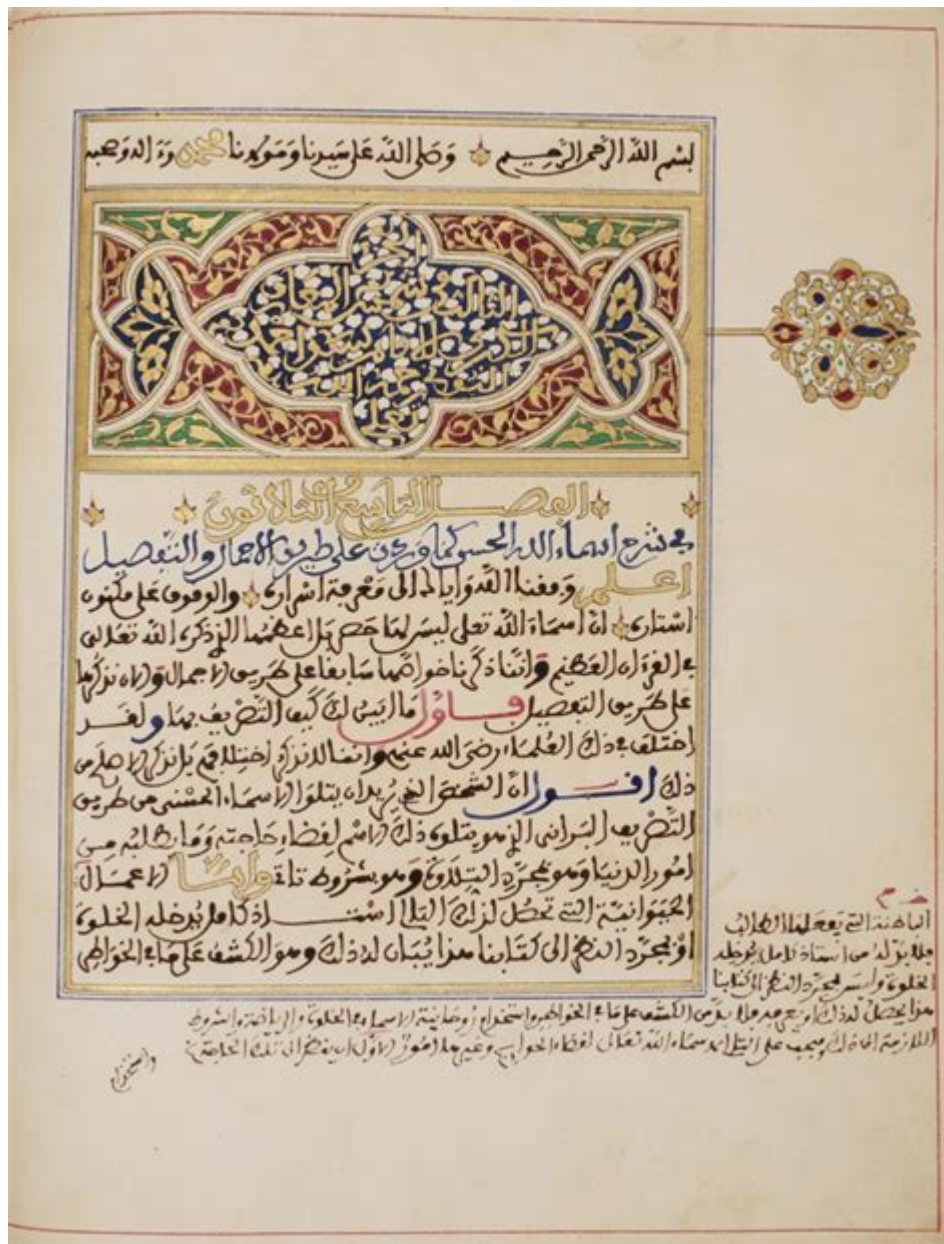 بسم الله الرحمن الرحيم وصلى الله على سيدنا ومولانا محمد وءاله وصحبه
الفصل التاسع والثلاثون
في شرح أسماء الله الحسنى كما وردت على طريق الاجمال والتفصيل
اعلم وفقنا الله واياك الى معرفة اسراره والوقوف على مكنون
استاره ان اسماء الله تعلى ليس لها حصر بل اعظمها الذي ذكره الله تعالى
في القرءان العظيم واننا ذكرنا خواصها سابقا على طريق الاجمال والان نذكرها
على طريق التفصيل فاول ما ابين لك كيف التصريف بها ولقد
اختلف في ذلك العلماء رضي الله عنهم واننا لا نذكر اختلافهم بل نذكر الاصلح من
ذلك اقول ان الشخص الذي يريد ان يتلو الاسماء الحسنى من طريق
التصريف البراني الذي هو يتلو ذلك الاسم لقضاء حاجته وما يطلبه من
امور الدنيا وهو مجرد التلاوة وهو بشروط تاتي وايضا الاعمال
الجوانية التي تحصل لذلك التالي استاذ كامل يدخله الخلوة
او بمجرد النظر الى كتابنا هذا يبان له ذلك وهو الكشف على ما في الخواطر
الباطنة التي يفعلها الطالب
فلا بد له من استاذ كامل يدخله
الخلوة وليس بمجرد النظر الى كتابنا
هذا يحصل له ذلك من الكشف على ما في الخواطر واستخدام روحانية الاسماء في الخلوة والرياضة والشروط
اللازمة الى ذلك ويجب على التالي اسماء الله تعالى لقضاء الحوايج وغيرها امور الاول ان ينظر الى تلك الحاجة